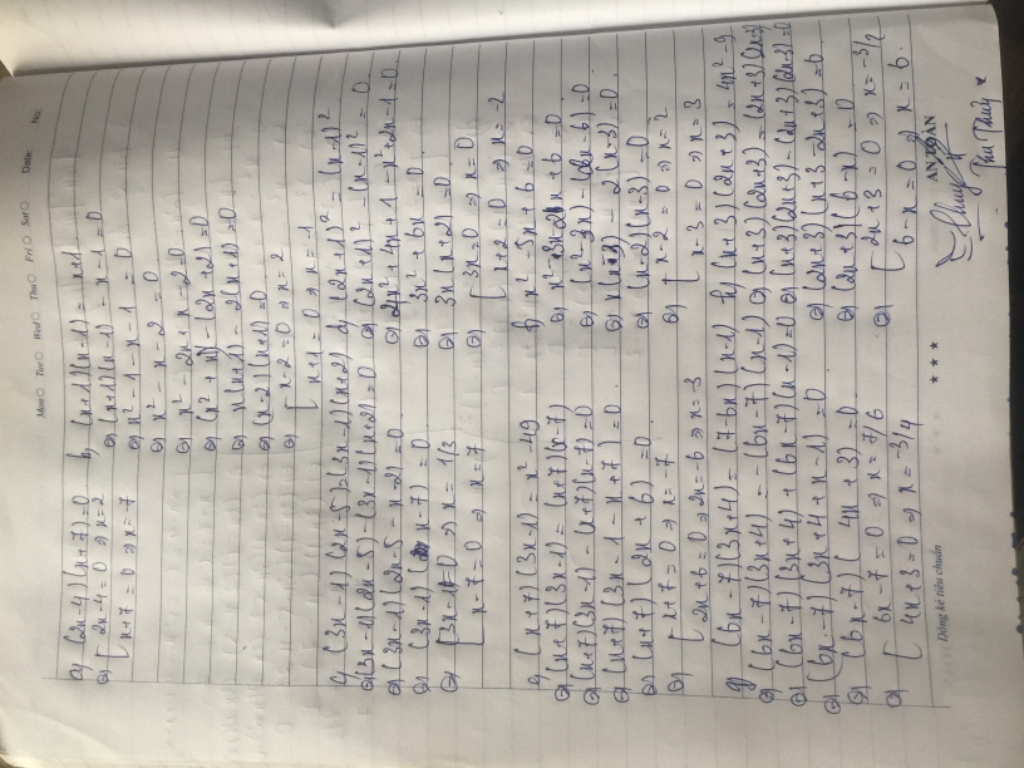 Mon Tue Wed Thu Fri Sat Date: No.
a) (2x-4)(x+7)=0
⇔ [ 2x-4=0 ⇒ x=2
[ x+7=0 ⇒ x=-7
b) (x+1)(x-1) = x+1
⇔ (x+1)(x-1) - x-1 = 0
⇔ x² - 1 - x - 1 = 0
⇔ x² - x - 2 = 0
⇔ x² - 2x + x - 2 = 0
⇔ (x² + x) - (2x+2) = 0
⇔ x(x+1) - 2(x+1) = 0
⇔ (x-2)(x+1) = 0
⇔ [ x-2=0 ⇒ x=2
[ x+1=0 ⇒ x=-1
c) (3x-1)(2x-5)=(3x-1)(x+2)
⇔ (3x-1)(2x-5)-(3x-1)(x+2)=0
⇔ (3x-1)(2x-5-x-2)=0
⇔ (3x-1)(x-7)=0
⇔ [ 3x-1=0 ⇒ x=1/3
[ x-7=0 ⇒ x=7
d) (2x+1)² = (x-1)²
⇔ (2x+1)² - (x-1)² = 0
⇔ 4x² + 4x + 1 - x² + 2x - 1 = 0
⇔ 3x² + 6x = 0
⇔ 3x(x+2) = 0
⇔ [ 3x=0 ⇒ x=0
[ x+2=0 ⇒ x=-2
e) (x+7)(3x-1) = x²-49
⇔ (x+7)(3x-1) = (x+7)(x-7)
⇔ (x+7)(3x-1) - (x+7)(x-7)=0
⇔ (x+7)(3x-1-x+7)=0
⇔ (x+7)(2x+6)=0
⇔ [ x+7=0 ⇒ x=-7
[ 2x+6=0 ⇒ 2x=-6 ⇒ x=-3
f) x² - 5x + 6 = 0
⇔ x² - 3x - 2x + 6 = 0
⇔ (x²-3x) - (2x-6) = 0
⇔ x(x-3) - 2(x-3) = 0
⇔ (x-2)(x-3) = 0
⇔ [ x-2=0 ⇒ x=2
[ x-3=0 ⇒ x=3
g) (6x-7)(3x+4) = (7-6x)(x-1)
⇔ (6x-7)(3x+4) = -(6x-7)(x-1)
⇔ (6x-7)(3x+4)+(6x-7)(x-1)=0
⇔ (6x-7)(3x+4+x-1)=0
⇔ (6x-7)(4x+3)=0
⇔ [ 6x-7=0 ⇒ x=7/6
[ 4x+3=0 ⇒ x=-3/4
h) (x+3)(2x+3) = 4x²-9
⇔ (x+3)(2x+3) = (2x+3)(2x-3)
⇔ (x+3)(2x+3)-(2x+3)(2x-3)=0
⇔ (2x+3)(x+3-2x+3)=0
⇔ (2x+3)(6-x)=0
⇔ [ 2x+3=0 ⇒ x=-3/2
[ 6-x=0 ⇒ x=6.
Dòng kẻ tiêu chuẩn
★ ★ ★
Thu Thủy